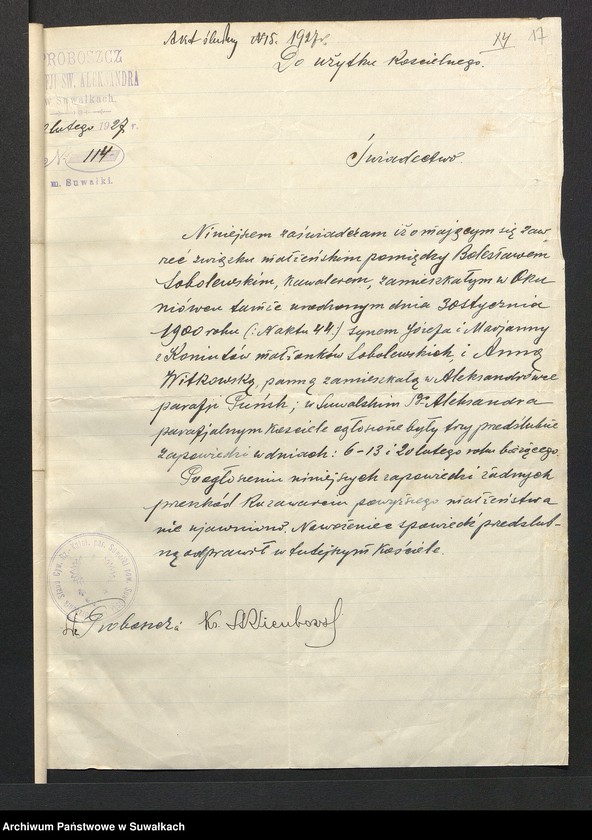 Akt ślubny N 15. 1927 r.
XV 17
Do użytku Kościelnego.
PROBOSZCZ
ŚW. ALEKSANDRA
w Suwałkach.
lutego 1927 r.
N 114
m. Suwałki.
Świadectwo.
Niniejszem zaświadczam iż o mającym się zaw
rzeć związku małżeńskim pomiędzy Bolesławem
Sobolewskim, kawalerem, zamieszkałym w Oku
niówcu tamże urodzonym dnia 30 stycznia
1900 roku (: N aktu 44.) synem Józefa i Marjanny
z małżonków Sobolewskich, i Anną
Witkowską, panną zamieszkałą w Aleksandrówce
parafji Puńsk; w Suwalskim Aleksandra
parafjalnym Kościele ogłoszone były trzy przedślubne
zapowiedzi w dniach: 6-13 i 20 lutego roku bieżącego.
Po ogłoszeniu niniejszych zapowiedzi żadnych
przeszkód ku zawarciu powyższego małżeństwa
nie ujawniono. Nowożeniec spowiedź przedślub-
ną odprawił w tutejszym Kościele.
Proboszcz: Ks.
Archiwum Państwowe w Suwałkach